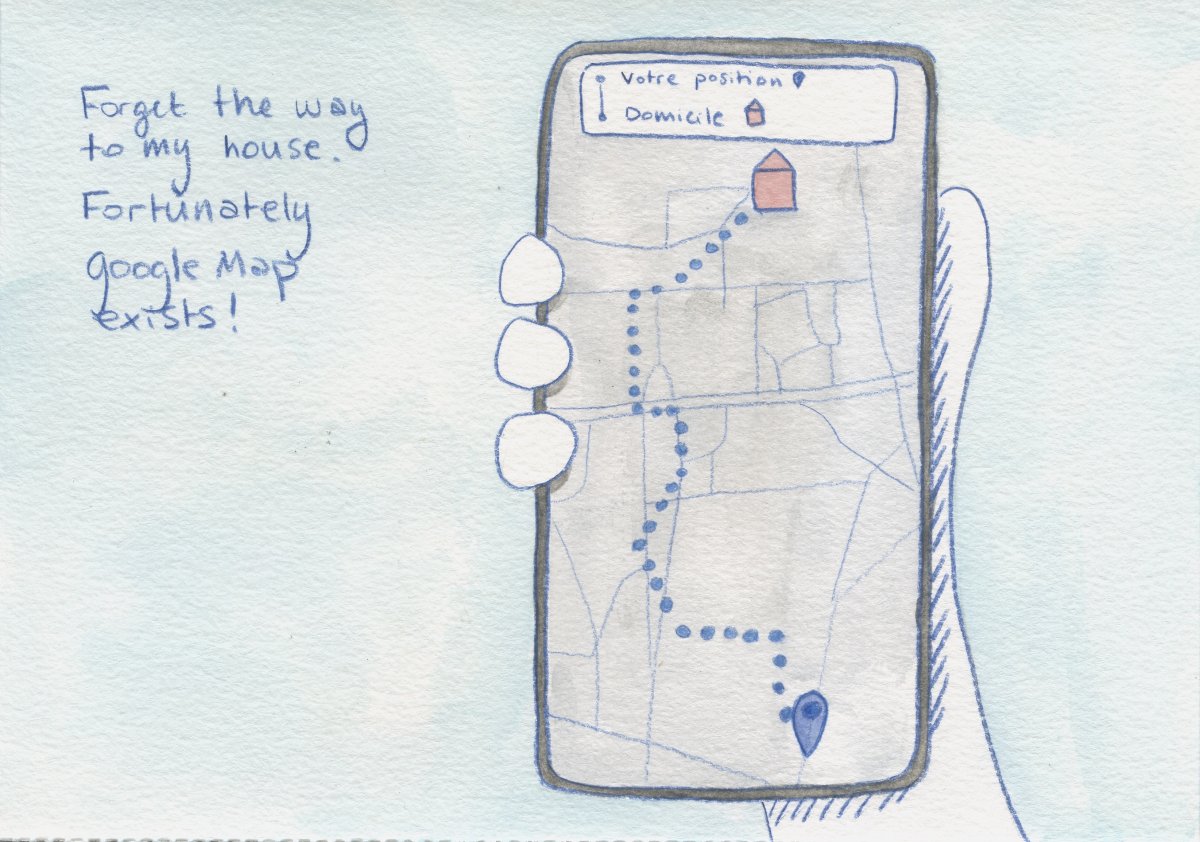 Forget the way
to my house.
Fortunately
google Map
exists!
Votre position
Domicile